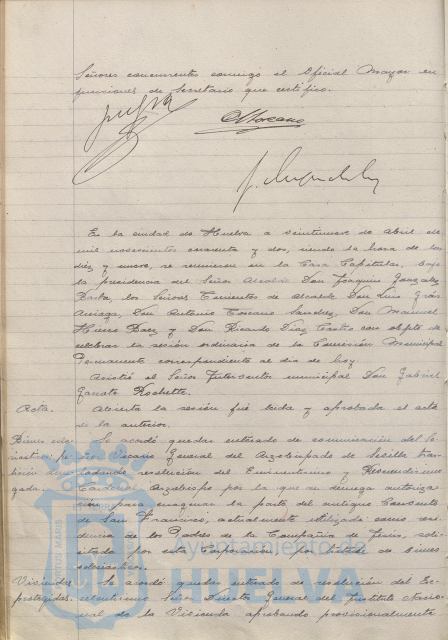 Señores concurrentes conmigo el Oficial Mayor en
funciones de Secretario que certifico.
En la ciudad de Huelva a veintinueve de Abril de
mil novecientos cuarenta y dos, siendo la hora de las
diez y nueve, se reunieron en la Casa Capitular, bajo
la presidencia del Señor Alcalde Don Joaquín González
Barba, los Señores Tenientes de Alcalde Don Luis
Don Antonio Toscano Sanchez, Don Manuel
Hierro Baez y Don Ricardo Diaz Castro con objeto de
celebrar la sesión ordinaria de la Comisión Municipal
Permanente correspondiente al día de hoy.
Asistió el Señor Interventor municipal Don Gabriel
Zapata Rochette.
Acta. Abierta la sesión fué leida y aprobada el acta
de la anterior.
Bienes ecle- Se acordó quedar enterado de comunicación del Se-
siasticos pe- ñor Vicario General del Arzobispado de Sevilla tras-
tición dene- ladando resolución del Eminentísimo y Reverendísimo
gada. Cardenal Arzobispo por la que se deniega autoriza-
ción para enagenar la parte del antiguo Convento
de San Francisco, actualmente utilizada como resi-
dencia de los Padres de la Compañía de Jesús, soli-
citada por esta Corporación por tratarse de bienes
eclesiasticos.
Viviendas Se acordó quedar enterado de resolución del Ex-
protegidas. celentísimo Señor Director General del Instituto Nacio-
nal de la Vivienda aprobando provisionalmente
Ayuntamiento de
HUELVA